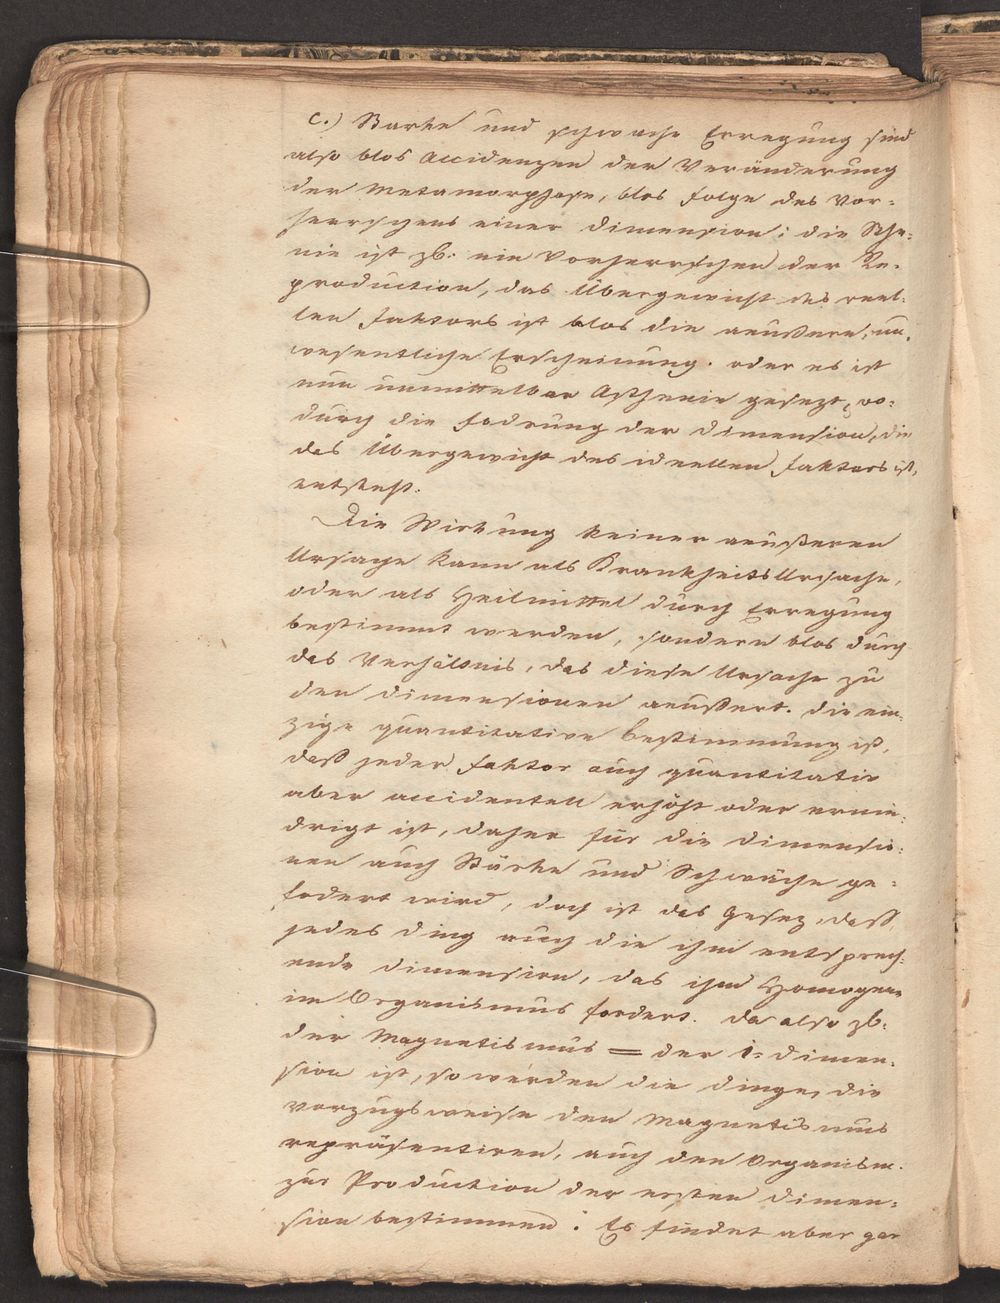 c.) Starke und schwache Erregung sind
also blos Accidenzen der Veränderung
der Metamorphose, blos Folge des Vor-
herrschens einer Dimension; die Sthe-
nie ist zb. ein Vorherrschen der Re-
production, das Übergewicht des reel-
len Faktors ist blos die aeußere, un-
wesentliche Erscheinung. oder es ist
nun unmittelbar Asthenie gesezt, wo-
durch die Fodrung der Dimension, die
das Übergewicht des ideellen Faktors ist,
entsteht.
Die Wirkung keiner aeußeren
Ursache kann als Krankheits Ursache,
oder als Heilmittel durch Erregung
bestimmt werden, sondern blos durch
das Verhältnis, das diese Ursache zu
den Dimensionen aeußert. die ein-
zige quantitative Bestimmung ist,
daß jeder Faktor auch quantitativ
aber accidentell erhöht oder ernie-
drigt ist, daher für die Dimensio-
nen auch Stärke und Schwäche ge-
fodert wird, doch ist das Gesez, daß
jedes Ding auch die ihm entsprech-
ende Dimension, das ihm Homogene
im Organismus fordert. Da also zb.
der Magnetismus = der 1- Dimen-
sion ist, so werden die Dinge, die
vorzugsweise den Magnetismus
repräsentiren, auch den Organism.
zur Production der ersten Dimen-
sion bestimmen. Es findet aber gar